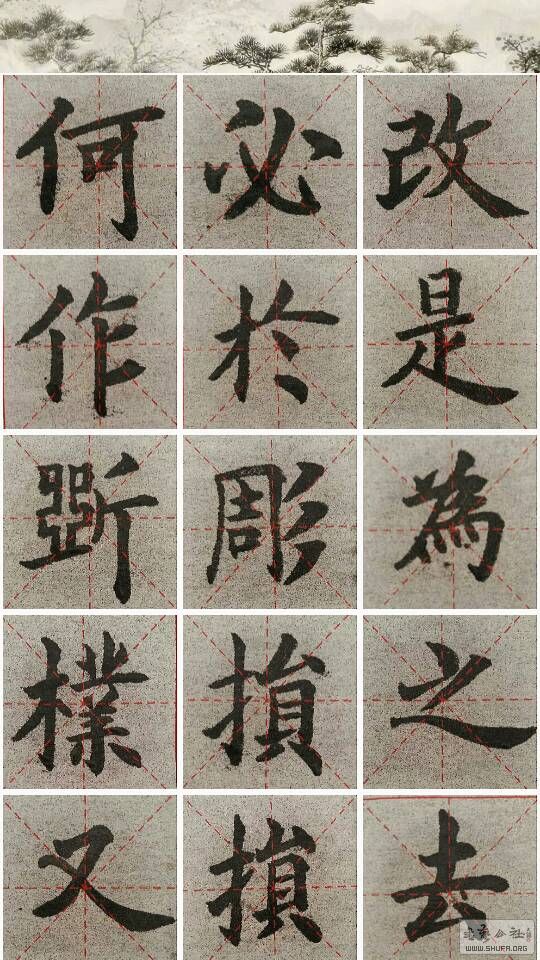 何必改
作於是
斲彫為
樸損之
又損去
WWW.SHUFA.ORG